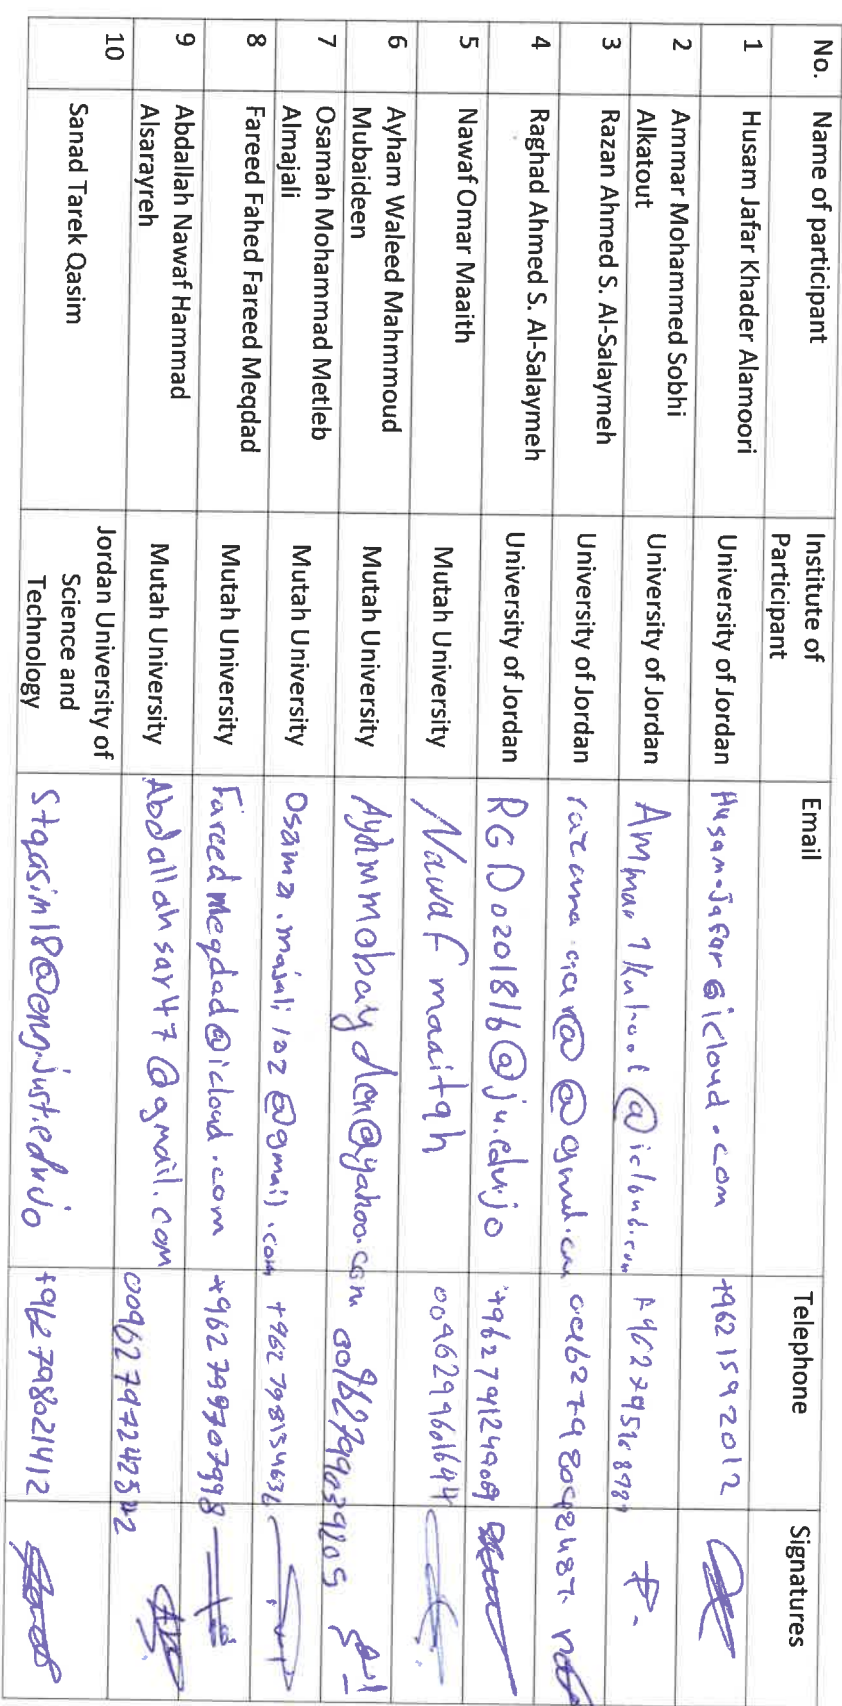 No. Name of participant Institute of Participant Email Telephone Signatures
1 Husam Jafar Khader Alamoori University of Jordan Husam.Jafar@icloud.com +962 1592012
2 Ammar Mohammed Sobhi Alkatout University of Jordan
3 Razan Ahmed S. Al-Salaymeh University of Jordan
4 Raghad Ahmed S. Al-Salaymeh University of Jordan RGD0201816@ju.edu.jo +962791249069
5 Nawaf Omar Maaith Mutah University Nawaf maaitah 0096299601644
6 Ayham Waleed Mahmmoud Mubaideen Mutah University Ayhmmobayden@yahoo.com
7 Osamah Mohammad Metleb Almajali Mutah University Osama.majali102@gmail.com +962 798154636
8 Fareed Fahed Fareed Meqdad Mutah University Fareedmeqdad@icloud.com +962799707998
9 Abdallah Nawaf Hammad Alsarayreh Mutah University Abdallahsar47@gmail.com
10 Sanad Tarek Qasim Jordan University of Science and Technology Stqasim18@eng.just.edu.jo +962798021412